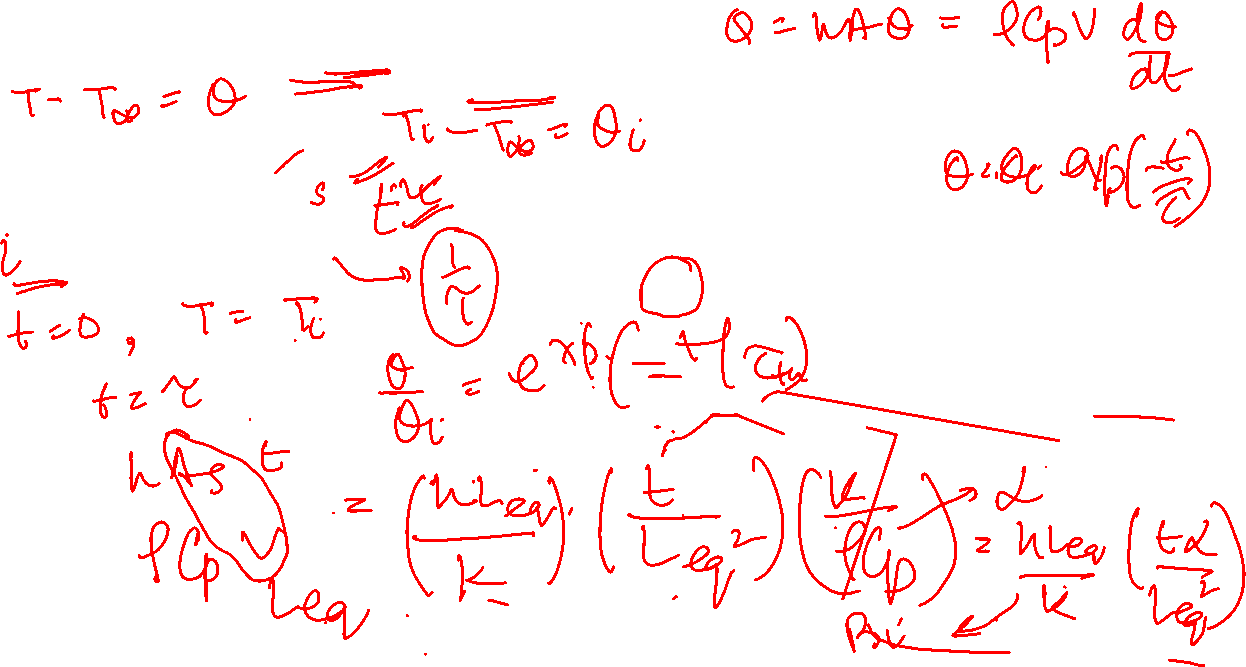 Q = hAθ = ρCpV dθ/dt
T - T∞ = θ
Ti - T∞ = θi
θ = θi exp(-t/τ)
s
i
1/τ
t=0, T = Ti
t = τ
θ/θi = exp(-t/τth)
hAs t / ρCp V = (hLeq/k) · (t/Leq²) (k/ρCp) = hLeq/k (tα/Leq²)
α
Leq
Bi